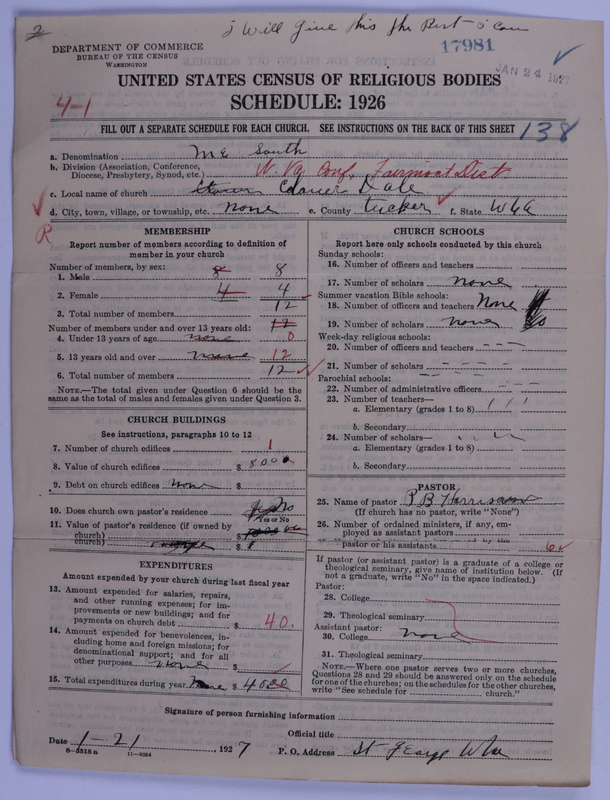 2 I Will Give this the Best I Can
DEPARTMENT OF COMMERCE
BUREAU OF THE CENSUS
WASHINGTON
17981
JAN 24 1927
UNITED STATES CENSUS OF RELIGIOUS BODIES
4-1
SCHEDULE: 1926
FILL OUT A SEPARATE SCHEDULE FOR EACH CHURCH. SEE INSTRUCTIONS ON THE BACK OF THIS SHEET
138
a. Denomination ME South
b. Division (Association, Conference, Diocese, Presbytery, Synod, etc.) W. Va Conf. Fairmont Dist
c. Local name of church Clover Dale
d. City, town, village, or township, etc. none e. County Tucker f. State W Va
R
MEMBERSHIP
Report number of members according to definition of member in your church
Number of members, by sex:
1. Male 8 8
2. Female 4 4
3. Total number of members 12
Number of members under and over 13 years old: 12
4. Under 13 years of age none 0
5. 13 years old and over none 12
6. Total number of members 12
NOTE.—The total given under Question 6 should be the same as the total of males and females given under Question 3.
CHURCH BUILDINGS
See instructions, paragraphs 10 to 12
7. Number of church edifices 1
8. Value of church edifices $ 8000
9. Debt on church edifices None $
10. Does church own pastor's residence No
Yes or No
11. Value of pastor's residence (if owned by church) $
church) $
EXPENDITURES
Amount expended by your church during last fiscal year
13. Amount expended for salaries, repairs, and other running expenses; for improvements or new buildings; and for payments on church debt $ 40.
14. Amount expended for benevolences, including home and foreign missions; for denominational support; and for all other purposes None $
15. Total expenditures during year None $ 40.00
CHURCH SCHOOLS
Report here only schools conducted by this church
Sunday schools:
16. Number of officers and teachers
17. Number of scholars none
Summer vacation Bible schools:
18. Number of officers and teachers None
19. Number of scholars none
Week-day religious schools:
20. Number of officers and teachers
21. Number of scholars
Parochial schools:
22. Number of administrative officers
23. Number of teachers—
a. Elementary (grades 1 to 8)
b. Secondary
24. Number of scholars—
a. Elementary (grades 1 to 8)
b. Secondary
PASTOR
25. Name of pastor P B Harrison
(If church has no pastor, write "None")
26. Number of ordained ministers, if any, employed as assistant pastors
pastor or his assistants
If pastor (or assistant pastor) is a graduate of a college or theological seminary, give name of institution below. (If not a graduate, write "No" in the space indicated.)
Pastor:
28. College
29. Theological seminary
Assistant pastor:
30. College none
31. Theological seminary
NOTE.—Where one pastor serves two or more churches, Questions 28 and 29 should be answered only on the schedule for one of the churches; on the schedules for the other churches, write "See schedule for church."
Signature of person furnishing information
Official title
Date 1-21, 1927 P. O. Address St George W Va
8-5318a 11-9034